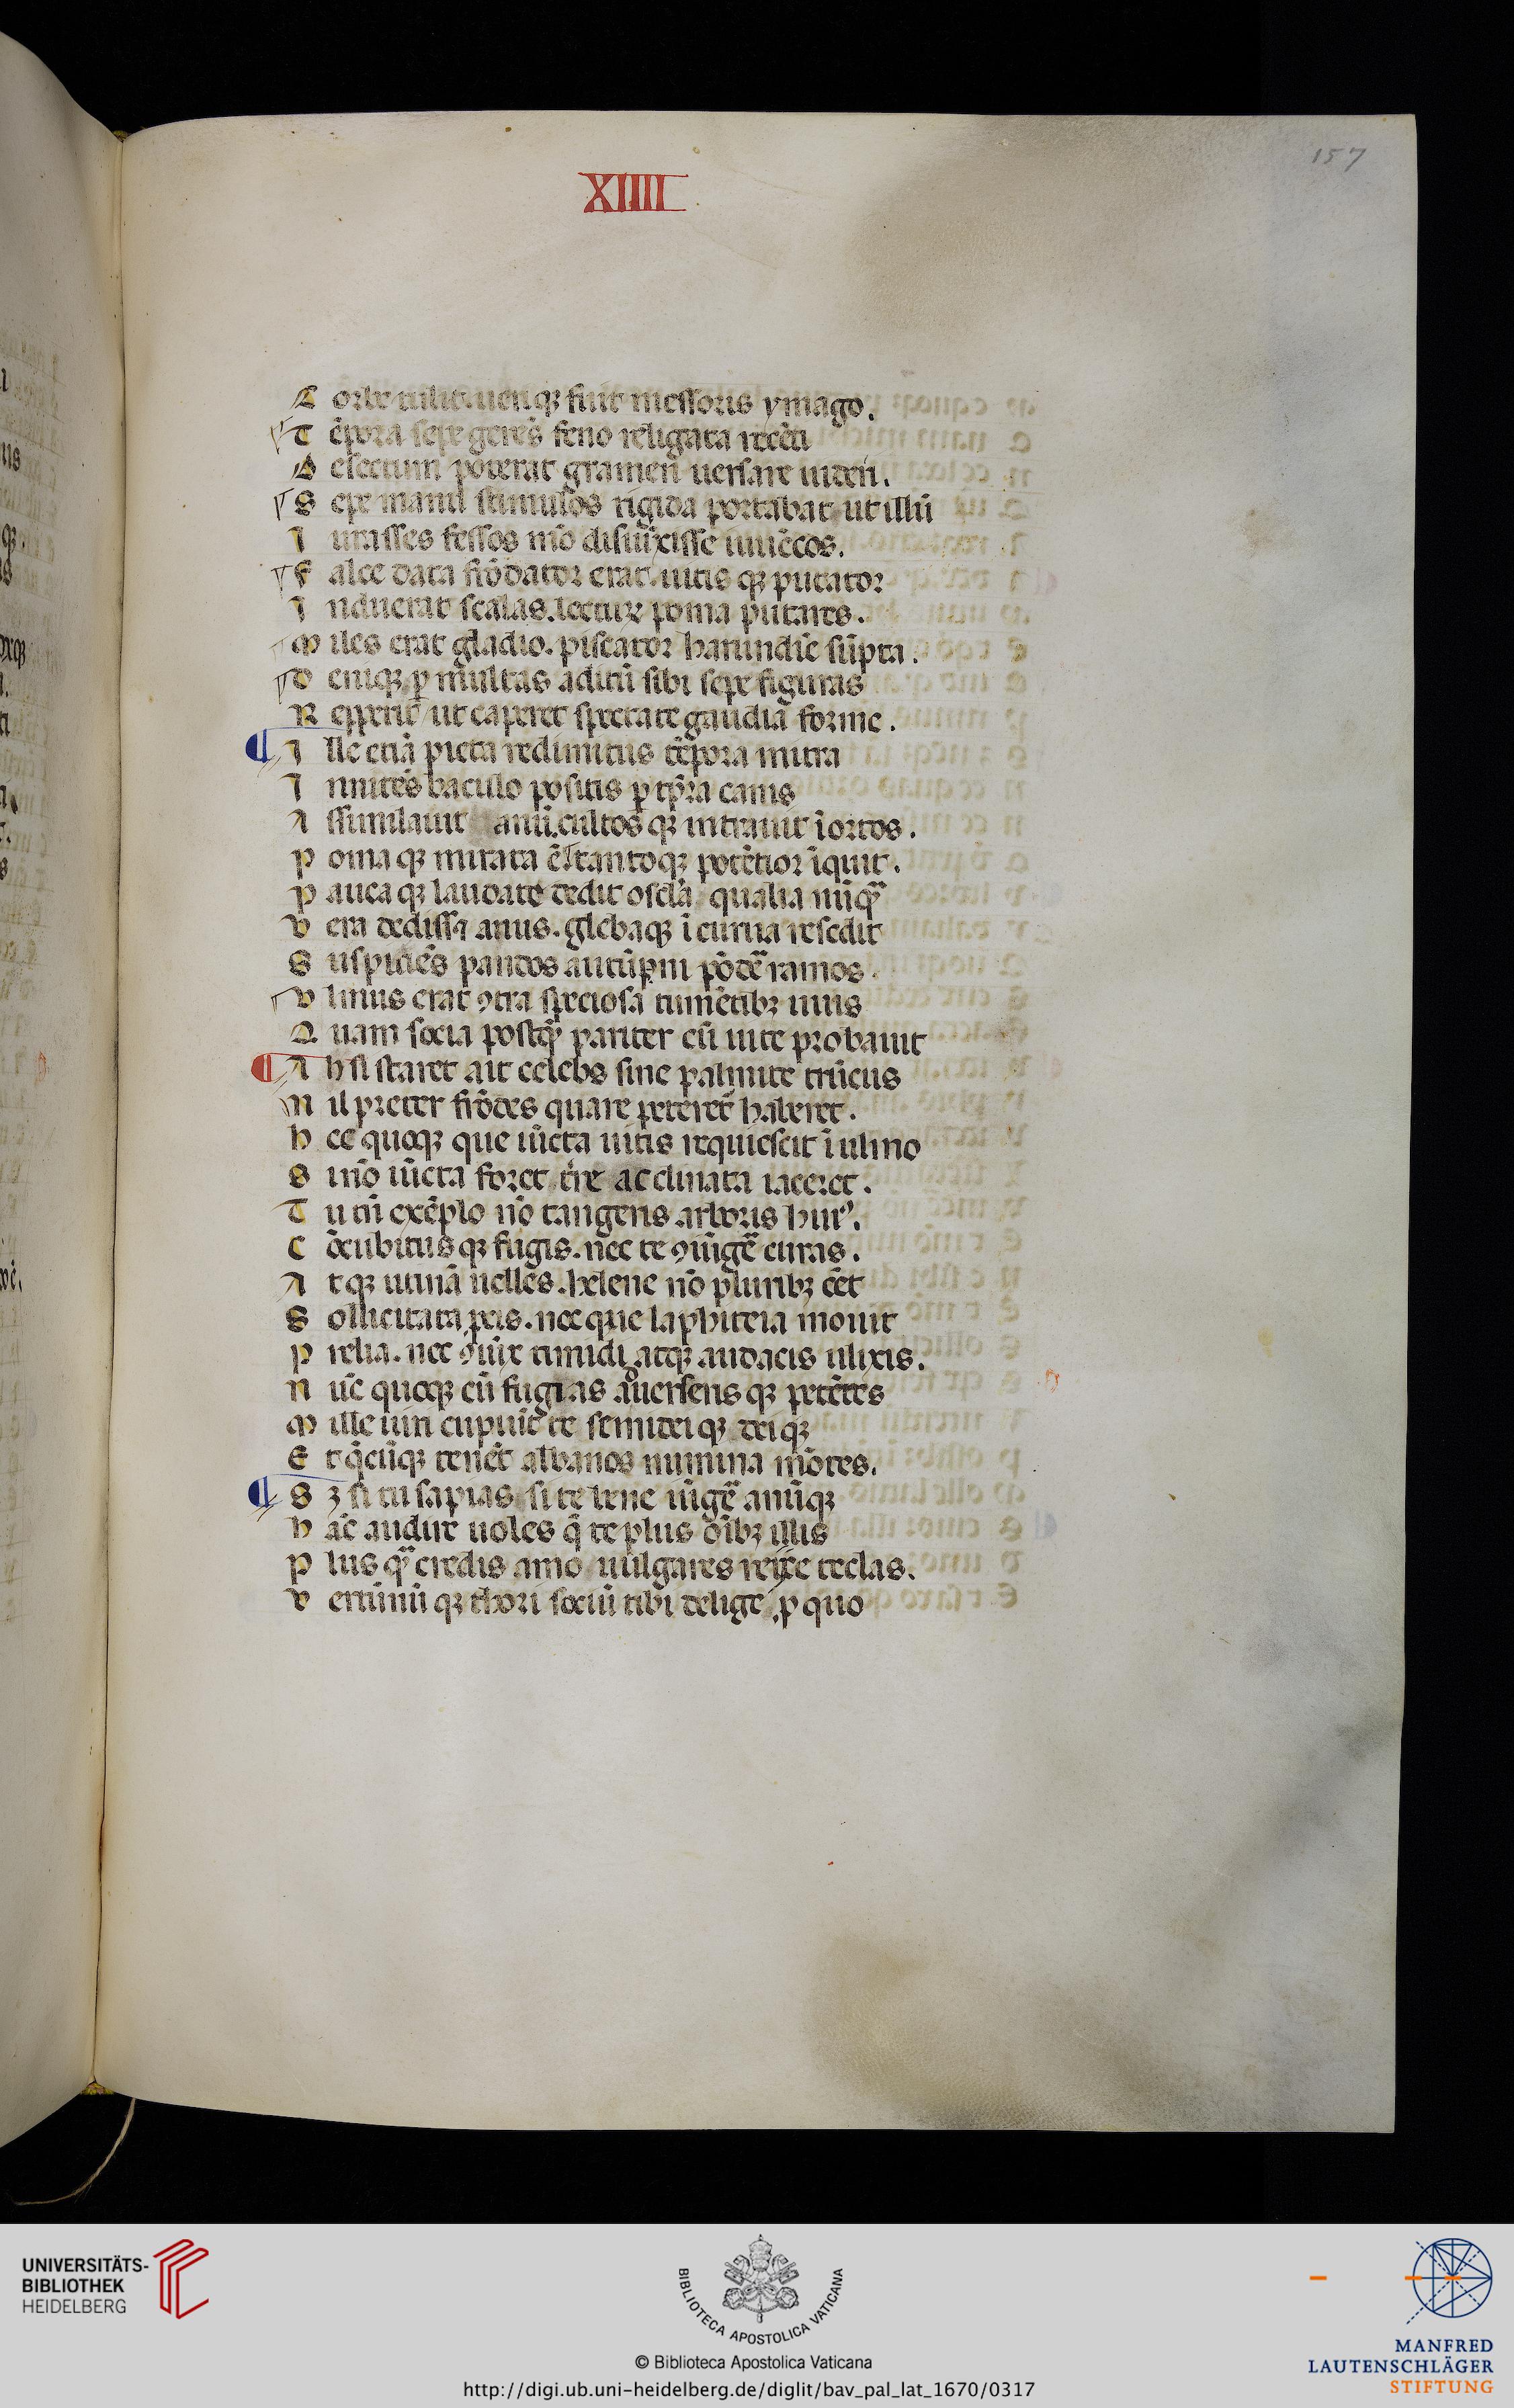 157
XIIII
C orbe tulit. ueri qꝫ fuit messoris ymago.
T ēpora sepe gerēs feno religata recēti
D esectum poterat gramen uersare uideri.
S epe manu stimulos rigida portabat. ut illū
I urasses fessos mō disiūxisse iuuēcos.
F alce data frōdator erat. uitis qꝫ putator
I nduerat scalas. lecturꝫ poma putares.
M iles erat gladio. piscator harundīe sūpta.
D eniqꝫ ꝑ multas aditū sibi sepe figuras
R epperit ut caperet spectate gaudia forme.
I lle etiā picta redimitus tēpora mitra
I nnitēs baculo positis ꝑ tpr̄a canis
A ssimilauit anū. cultos qꝫ intrauit ī ortos.
P oma qꝫ mirata ē. tantoqꝫ potētior īquit.
P auca qꝫ laudate dedit oscl̄a. qualia nūqᷓ
V era dedissꝫ anus. glebaqꝫ ī curua resedit
S uspiciēs pandos autūpni pōdē ramos.
V lmus erat ꝯtra speciosa tumētibꝫ uuis
Q uam socia postqᷓ pariter cū uite probauit
A h si staret ait celebs sine palmite trūcus
N il preter frōdes quare peteret̄ haberet.
H ec quoqꝫ que iūcta uitis requiescit ī ulmo
S i nō iūcta foret. tr̄re acclinata iaceret.
T u tn̄ exēplo nō tangeris arboris huiꝰ.
C ōcubitus qꝫ fugis. nec te ꝯiūgē curas.
A tqꝫ utinā uelles. helene nō pluribꝫ eēt
S ollicitata ꝓcis. nec que laphiteia mouit
P relia. nec ꝯiūx timidi atqꝫ audacis ulixis.
N ūc quoqꝫ cū fugias auersens qꝫ petētes
M ille uiri cupiūt te semidei qꝫ dei qꝫ
E t q̄cūqꝫ tenēt albanos numina mōtes.
S ꝫ si tu sapias si te bene iūgē anūqꝫ
H āc audire uoles q̄ te plus oībꝫ illis
P lus qᷓ credis amo. uulgares reiice tedas.
V ertūnū qꝫ thori sociū tibi delige. ꝑ quo
UNIVERSITÄTS-
BIBLIOTHEK
HEIDELBERG
BIBLIOTECA APOSTOLICA VATICANA
© Biblioteca Apostolica Vaticana
http://digi.ub.uni-heidelberg.de/diglit/bav_pal_lat_1670/0317
MANFRED
LAUTENSCHLÄGER
STIFTUNG